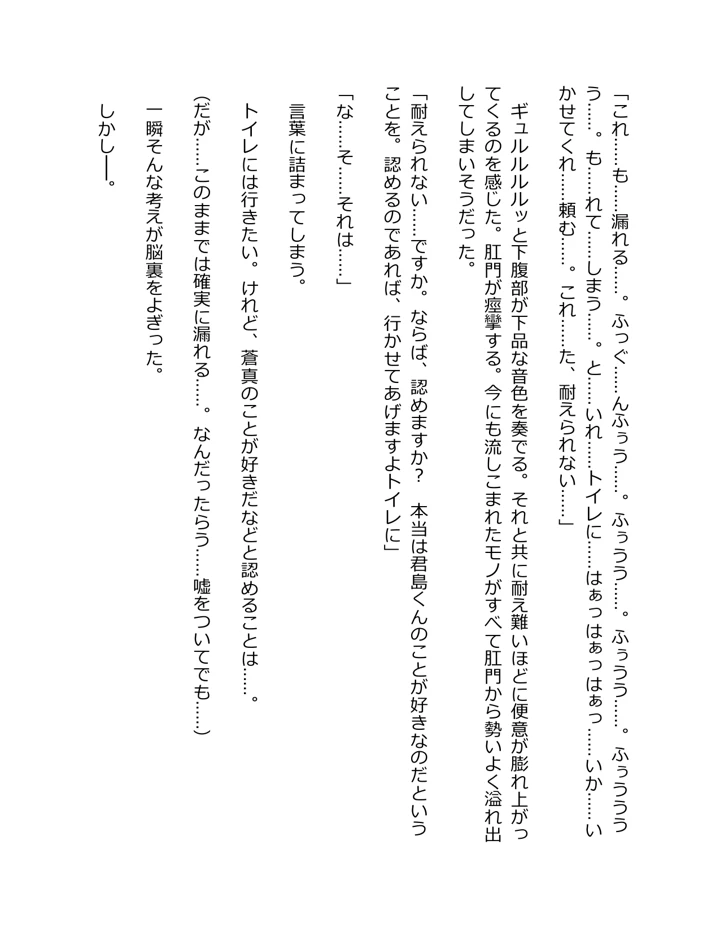 「これ……も……漏れる……。ふっぐ……んふぅう……。ふぅうう……。ふぅうう……。ふぅううう
う……。も……れて……しまう……。と……いれ……トイレに……はぁっはぁっはぁっ……いか……い
かせてくれ……頼む……。これ……た、耐えられない……」
ギュルルルルッと下腹部が下品な音色を奏でる。それと共に耐え難いほどに便意が膨れ上がっ
てくるのを感じた。肛門が痙攣する。今にも流しこまれたモノがすべて肛門から勢いよく溢れ出
してしまいそうだった。
「耐えられない……ですか。ならば、認めますか？　本当は君島くんのことが好きなのだという
ことを。認めるのであれば、行かせてあげますよトイレに」
「な……そ……それは……」
言葉に詰まってしまう。
トイレには行きたい。けれど、蒼真のことが好きだなどと認めることは……。
（だが……このままでは確実に漏れる……。なんだったらう……嘘をついてでも……）
一瞬そんな考えが脳裏をよぎった。
しかし――。